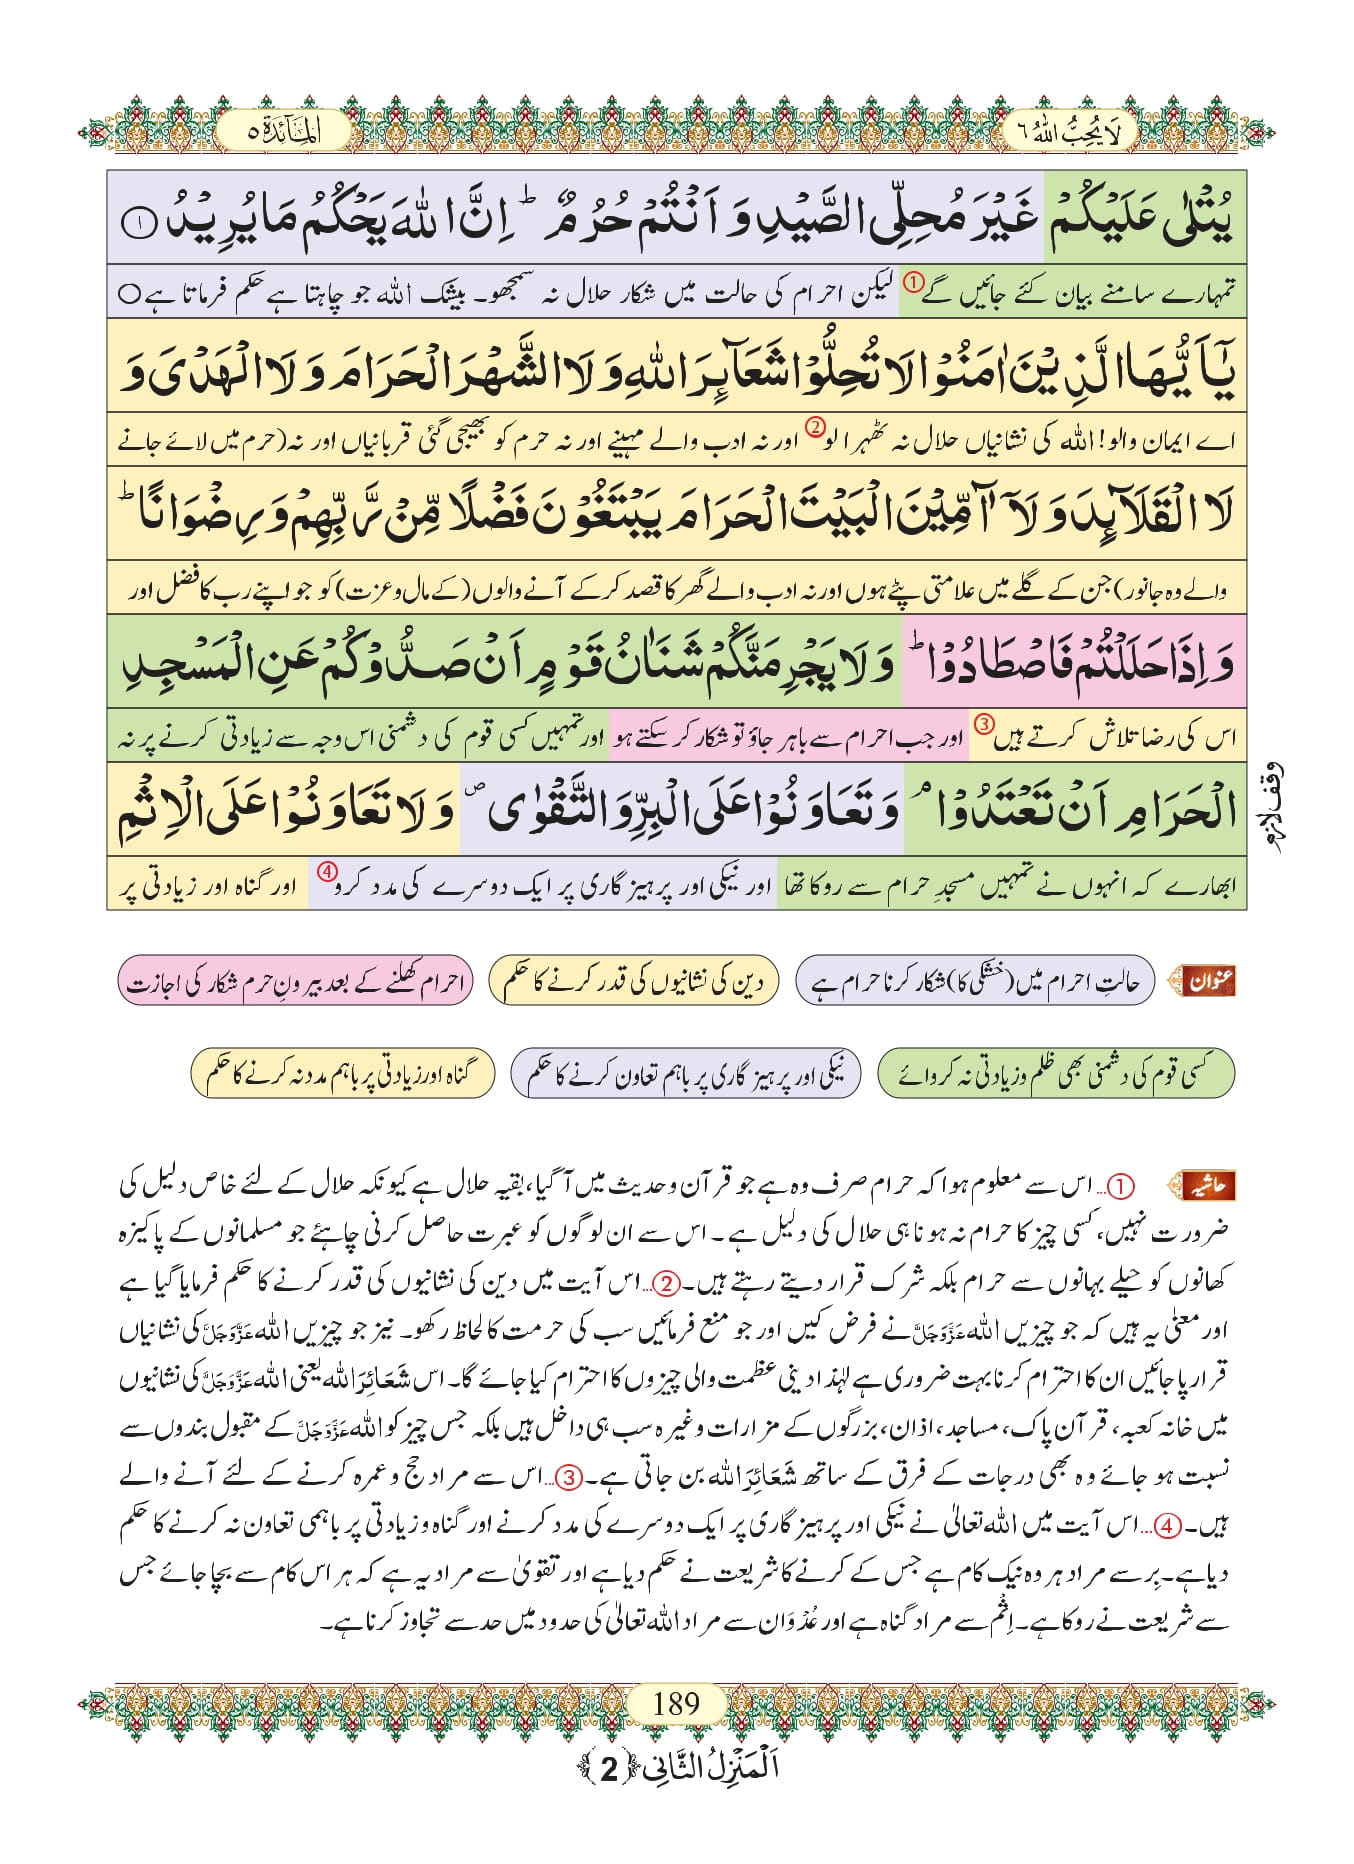 لَا یُحِبُّ اللّٰهُ ٦
اَلْمَآئِدَة ٥
یُتْلٰى عَلَیْكُمْ غَیْرَ مُحِلِّی الصَّیْدِ وَ اَنْتُمْ حُرُمٌؕ اِنَّ اللّٰهَ یَحْكُمُ مَا یُرِیْدُ ﴿١﴾
تمہارے سامنے بیان کئے جائیں گے ① لیکن احرام کی حالت میں شکار حلال نہ سمجھو۔ بیشک اللہ جو چاہتا ہے حکم فرماتا ہے ○
یٰۤاَیُّهَا الَّذِیْنَ اٰمَنُوْا لَا تُحِلُّوْا شَعَآىٕرَ اللّٰهِ وَ لَا الشَّهْرَ الْحَرَامَ وَ لَا الْهَدْیَ وَ
اے ایمان والو! اللہ کی نشانیاں حلال نہ ٹھہرا لو ② اور نہ ادب والے مہینے اور نہ حرم کو بھیجی گئی قربانیاں اور نہ (حرم میں لائے جانے
لَا الْقَلَآىٕدَ وَ لَاۤ آٰمِّیْنَ الْبَیْتَ الْحَرَامَ یَبْتَغُوْنَ فَضْلًا مِّنْ رَّبِّهِمْ وَ رِضْوَانًاؕ
والے وہ جانور) جن کے گلے میں علامتی پٹے ہوں اور نہ ادب والے گھر کا قصد کرکے آنے والوں (کے مال وعزت) کو جو اپنے رب کا فضل اور
وَ اِذَا حَلَلْتُمْ فَاصْطَادُوْاؕ وَ لَا یَجْرِمَنَّكُمْ شَنَاٰنُ قَوْمٍ اَنْ صَدُّوْكُمْ عَنِ الْمَسْجِدِ
اس کی رضا تلاش کرتے ہیں ③ اور جب احرام سے باہر جاؤ تو شکار کرسکتے ہو اور تمہیں کسی قوم کی دشمنی اس وجہ سے زیادتی کرنے پر نہ
الْحَرَامِ اَنْ تَعْتَدُوْاۘ وَ تَعَاوَنُوْا عَلَى الْبِرِّ وَ التَّقْوٰى۪ وَ لَا تَعَاوَنُوْا عَلَى الْاِثْمِ
وقف لازم
ابھارے کہ انہوں نے تمہیں مسجدِ حرام سے روکا تھا اور نیکی اور پرہیزگاری پر ایک دوسرے کی مدد کرو ④ اور گناہ اور زیادتی پر
عنوان حالتِ احرام میں (خشکی کا) شکار کرنا حرام ہے دین کی نشانیوں کی قدر کرنے کا حکم احرام کھلنے کے بعد بیرونِ حرم شکار کی اجازت
کسی قوم کی دشمنی بھی ظلم وزیادتی نہ کروائے نیکی اور پرہیزگاری پر باہم تعاون کرنے کا حکم گناہ اور زیادتی پر باہم مدد نہ کرنے کا حکم
حاشیہ ①... اس سے معلوم ہوا کہ حرام صرف وہ ہے جو قرآن وحدیث میں آگیا، بقیہ حلال ہے کیونکہ حلال کے لئے خاص دلیل کی
ضرورت نہیں، کسی چیز کا حرام نہ ہونا ہی حلال کی دلیل ہے۔ اس سے ان لوگوں کو عبرت حاصل کرنی چاہئے جو مسلمانوں کے پاکیزہ
کھانوں کو حیلے بہانوں سے حرام بلکہ شرک قرار دیتے رہتے ہیں۔ ②... اس آیت میں دین کی نشانیوں کی قدر کرنے کا حکم فرمایا گیا ہے
اور معنیٰ یہ ہیں کہ جو چیزیں اللہ عَزَّوَجَلَّ نے فرض کیں اور جو منع فرمائیں سب کی حرمت کا لحاظ رکھو۔ نیز جو چیزیں اللہ عَزَّوَجَلَّ کی نشانیاں
قرار پاجائیں ان کا احترام کرنا بہت ضروری ہے لہٰذا دینی عظمت والی چیزوں کا احترام کیا جائے گا۔ اس شَعَائِرَ اللہ یعنی اللہ عَزَّوَجَلَّ کی نشانیوں
میں خانہ کعبہ، قرآن پاک، مساجد، اذان، بزرگوں کے مزارات وغیرہ سب ہی داخل ہیں بلکہ جس چیز کو اللہ عَزَّوَجَلَّ کے مقبول بندوں سے
نسبت ہوجائے وہ بھی درجات کے فرق کے ساتھ شَعَائِرَ اللہ بن جاتی ہے۔ ③... اس سے مراد حج وعمرہ کرنے کے لئے آنے والے
ہیں۔ ④... اس آیت میں اللہ تعالیٰ نے نیکی اور پرہیزگاری پر ایک دوسرے کی مدد کرنے اور گناہ وزیادتی پر باہمی تعاون نہ کرنے کا حکم
دیا ہے۔ بِر سے مراد ہر وہ نیک کام ہے جس کے کرنے کا شریعت نے حکم دیا ہے اور تقویٰ سے مراد یہ ہے کہ ہر اس کام سے بچا جائے جس
سے شریعت نے روکا ہے۔ اِثْم سے مراد گناہ ہے اور عُدْوَان سے مراد اللہ تعالیٰ کی حدود میں حد سے تجاوز کرنا ہے۔
189
اَلْمَنْزِلُ الثَّانِی ﴿2﴾